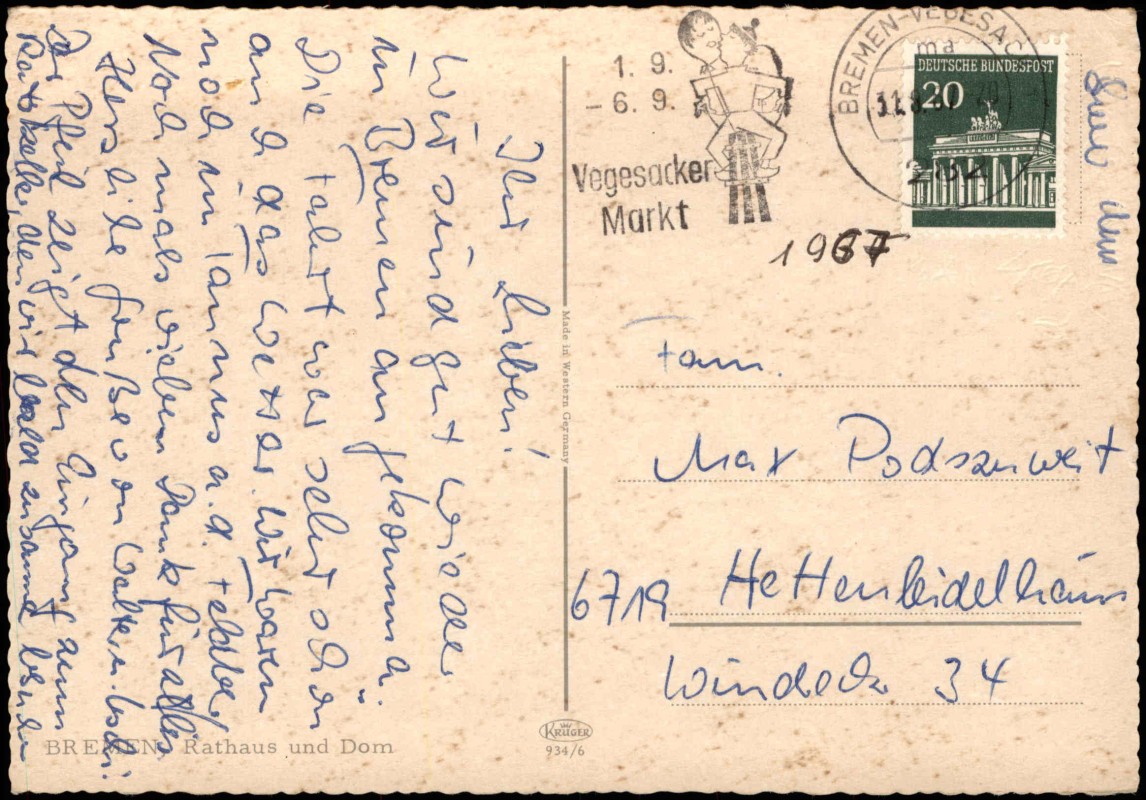 Ihr Lieben!
Wir sind gut wieder
in Bremen angekommen.
Die Fahrt war sehr schön
und das Wetter. Wir waren
noch im Taunus a.d. Feldberg
Nochmals vielen Dank für alles
Herzliche Grüße von Walter u.
Der Pfeil zeigt den Eingang zum
Ratskeller, den wir bald zusammen
BREMEN, Rathaus und Dom
Made in Western Germany
KRÜGER
934/6
1. 9.
– 6. 9.
Vegesacker
Markt
BREMEN-VEGESACK
ma
282
DEUTSCHE BUNDESPOST
20
1967
Fam.
Max Podszuweit
6719 Hettenleidelheim
Windeck 34